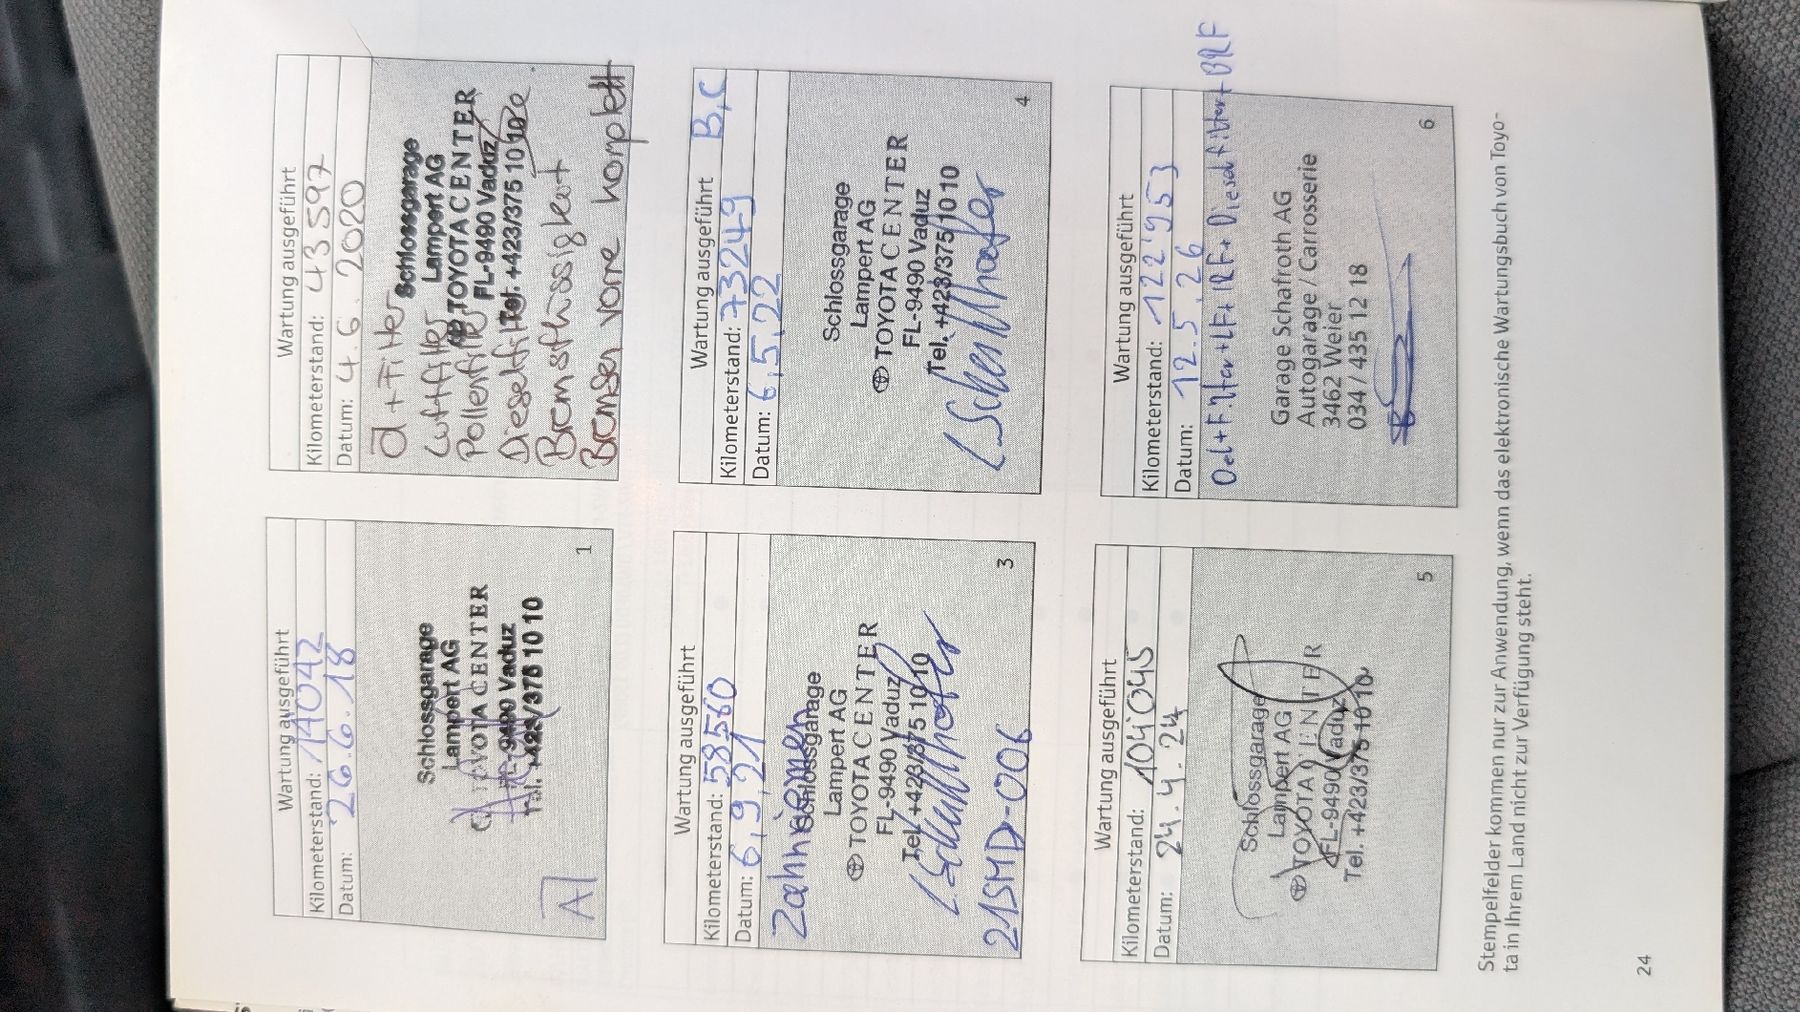 Wartung ausgeführt
Kilometerstand: 14042
Datum: 26.6.18
Schlossgarage
Lampert AG
TOYOTA CENTER
FL-9490 Vaduz
Tel. +423/375 10 10
A1
1
Wartung ausgeführt
Kilometerstand: 43597
Datum: 4.6.2020
Öl + Filter
Luftfilter
Pollenfilter
Dieselfilter
Bremsflüssigkeit
Bremsen vorne komplett
Schlossgarage
Lampert AG
TOYOTA CENTER
FL-9490 Vaduz
Tel. +423/375 10 10
Wartung ausgeführt
Kilometerstand: 58560
Datum: 6,9,21
Zahnriemen
Schlossgarage
Lampert AG
TOYOTA CENTER
FL-9490 Vaduz
Tel. +423/375 10 10
21SMD-006
3
Wartung ausgeführt B,C
Kilometerstand: 73249
Datum: 6,5,22
Schlossgarage
Lampert AG
TOYOTA CENTER
FL-9490 Vaduz
Tel. +423/375 10 10
4
Wartung ausgeführt
Kilometerstand: 104'045
Datum: 24.4.24
Schlossgarage
Lampert AG
TOYOTA CENTER
FL-9490 Vaduz
Tel. +423/375 10 10
5
Wartung ausgeführt
Kilometerstand: 122'953
Datum: 12.5.26
Oel+Filter+LF+IRF+Dieselfilter+BRF
Garage Schafroth AG
Autogarage / Carrosserie
3462 Weier
034 / 435 12 18
6
Stempelfelder kommen nur zur Anwendung, wenn das elektronische Wartungsbuch von Toyo-
ta in Ihrem Land nicht zur Verfügung steht.
24